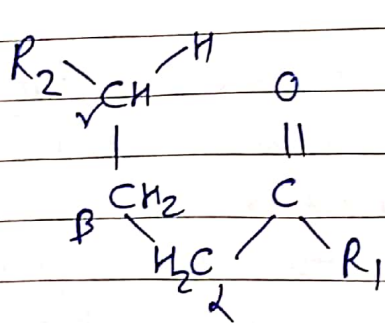 R2 H
γ CH O
β CH2 C
H2C R1
α